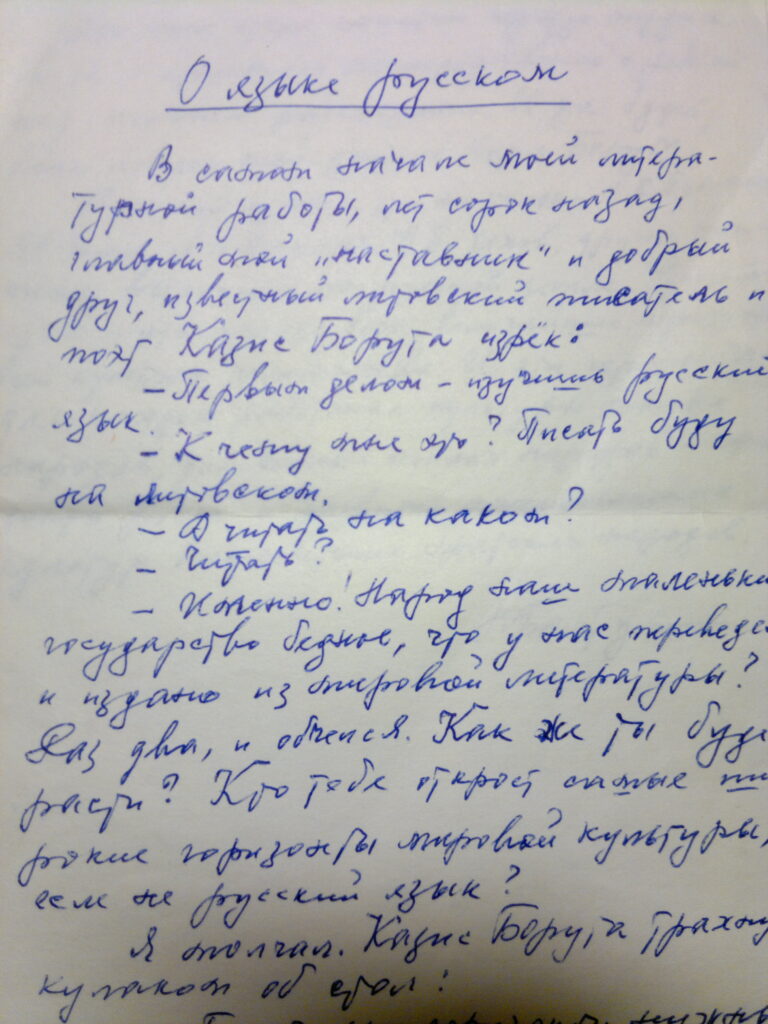 О языке русском
В самом начале моей литера-
турной работы, лет сорок назад,
главный мой „наставник" и добрый
друг, известный литовский писатель и
поэт Казис Борута изрёк:
— Первым делом — изучишь русский
язык.
— К чему мне это? Писать буду
на литовском.
— А читать на каком?
— Читать?
— Именно! Народ наш маленьки
государство бедное, что у нас переведе
и издано из мировой литературы?
Раз два, и обчелся. Как же ты буде
расти? Кто тебе откроет самые ши
рокие горизонты мировой культуры,
если не русский язык?
Я молчал. Казис Борута трахну
кулаком об стол: